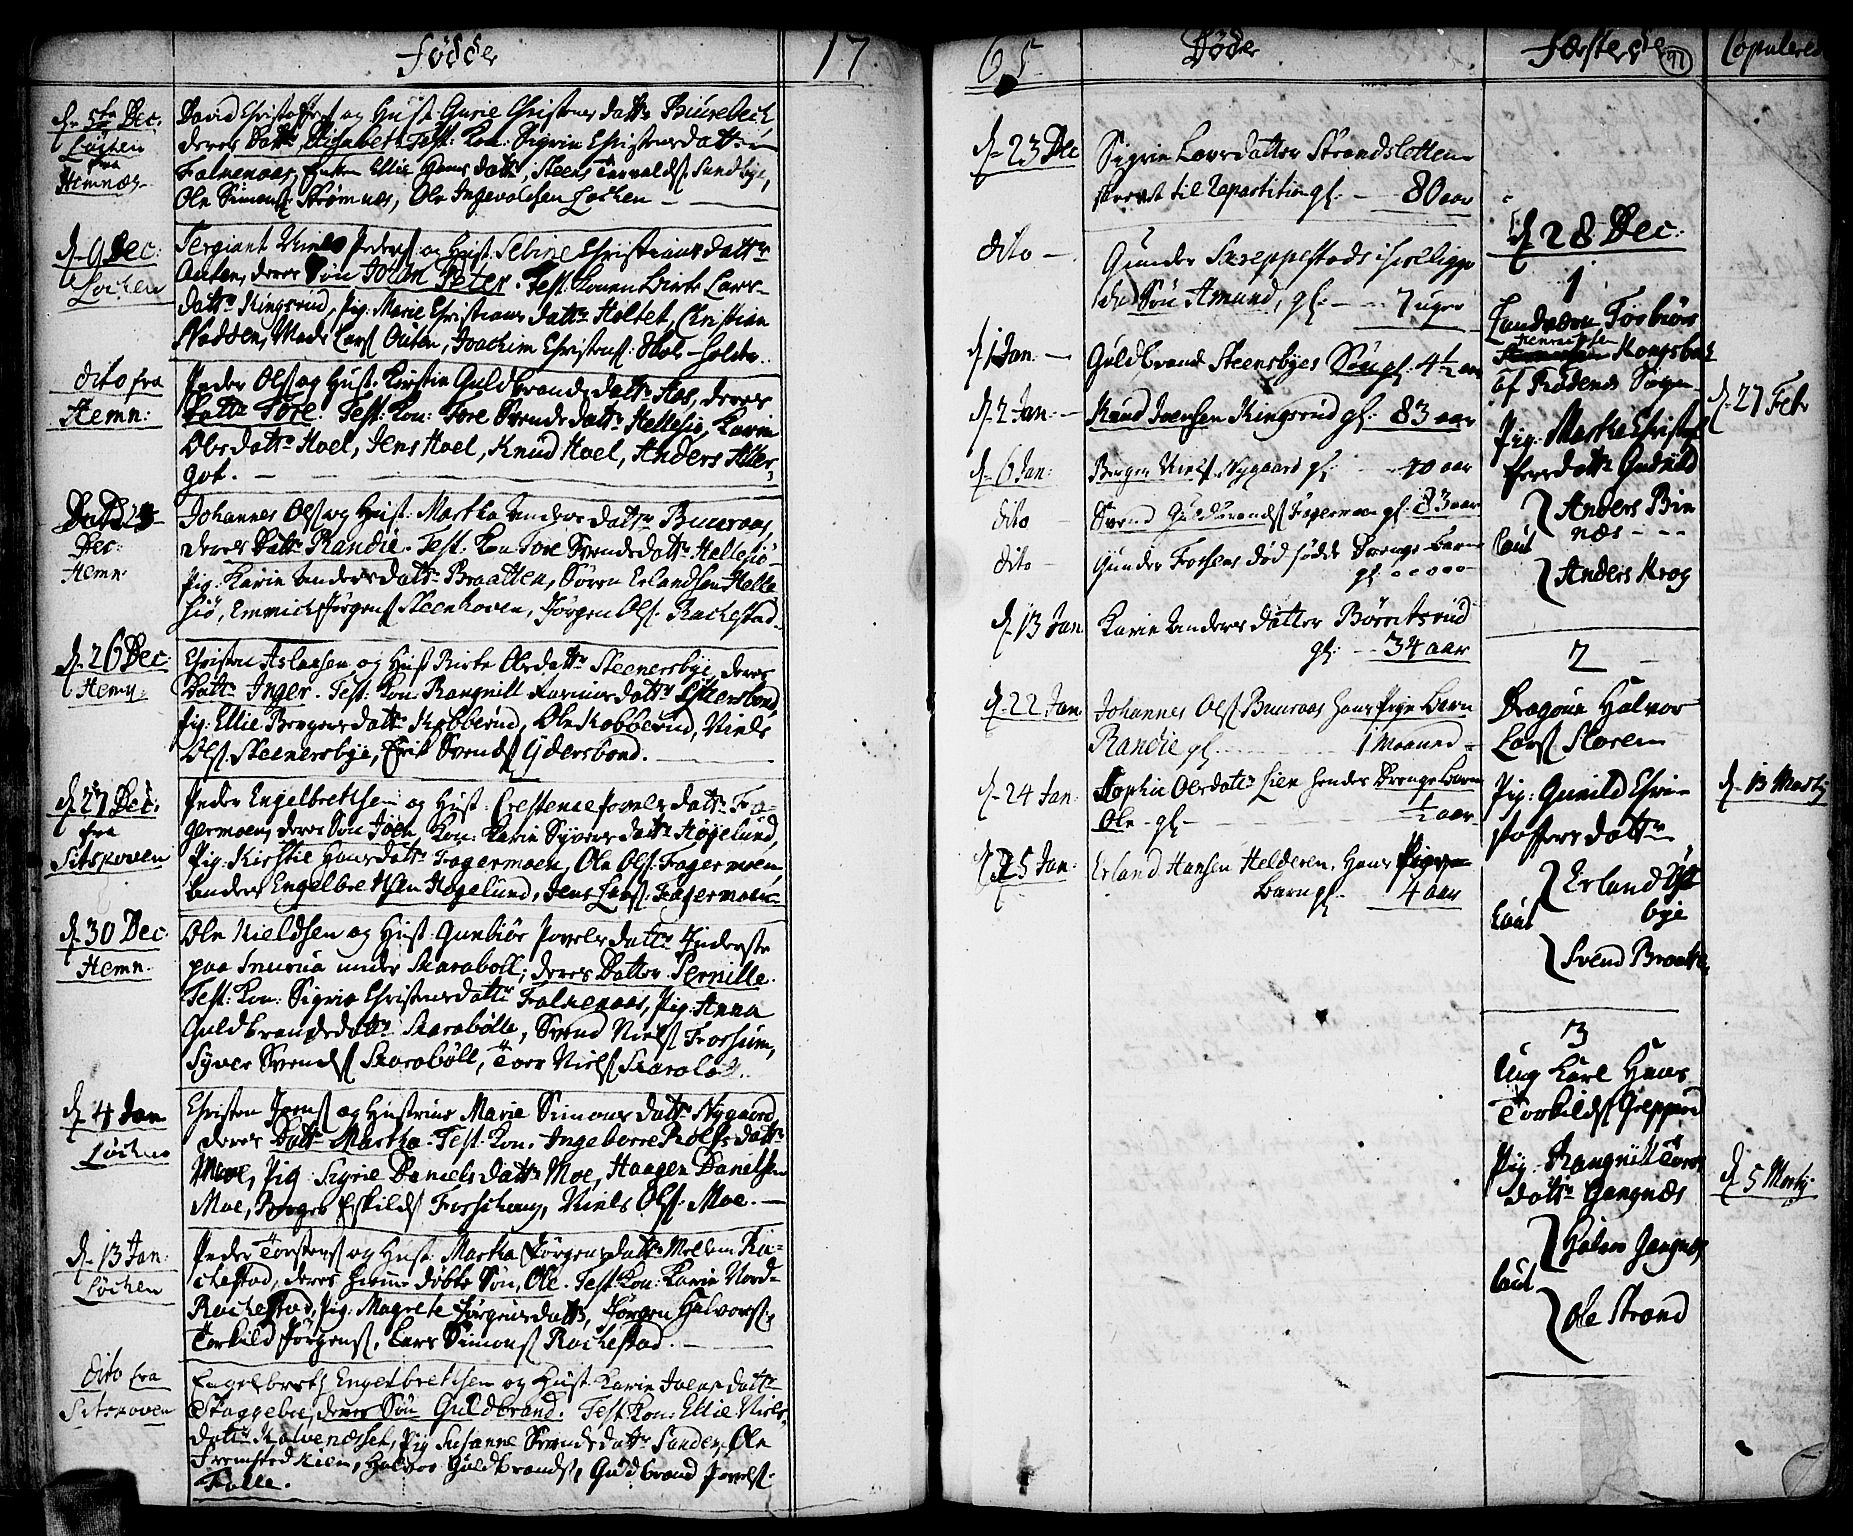 Fødde
17
d. 5te Dec:
Løchen
fra
Hemnæs
David Christoffers og Hust Gurie Christensdatter Biurebech
deres Datter Elisabeth Test: Kon. Sigrie Christensdatter
Falnenaas, Enken Ellie Hansdatter, Steens Torvalds Sundbye,
Ole Simons Strømnæs, Ole Ingevaldsen Lochen
d. 9 Dec:
Løchen
Sergiant Niels Peders og Hust. Sebine Christiansdatter
Outen, deres Søn Johan Peter. Test: Konen Birte Lars-
datter Kingsrud, Pig: Marie Christiansdatter Holtet, Christian
Nadden, Mads Lars Outen, Joachim Christens:
dito fra
Hemn:
Peder Ols og Hust. Kirstie Guldbrandsdatter Aas, deres
Datter Tore Test: Kon: Tore Svendsdatter Hellesiø, Karin
Olsdatter Hoel, Jens Hoel, Knud Hoel, Anders Aller-
got.
Dec:
Hemn:
Johannes Ols og Hust: Martha Andersdatter Buuraas,
deres Datter Randie. Test. Kon Tore Svendsdatter Hellesiø
Pig: Karin Andersdatter Braatten, Søren Erlandsen Helle
siø, Emmich Jørgens Steenhoven, Jørgen Ols: Rachestad
d. 26 Dec
Hemn:
Christen Aslaksen og Hust Birte Olsdatter Steenersbye, deres
Datter Inger. Test: Kon: Rangnill Rasmusdatter Ydersbond,
pig: Ellie Borgersdatter Kobberud, Ole Kobberud, Niels
Ols. Steenersbye, Erik Svends Ydersbond.
d. 27 Dec:
fra
Sitskoven
Peder Engelbretsen og Hust: Crestense Povelsdatter Fa-
germoen, deres Søn Joen Kon: Karie Syversdatter Høgelund,
Pig: Kirstie Hansdatter Fagermoen, Ole Ols: Fagermoen,
Anders Engelbretsen Høgelund, Jens Lars: Fagermoen
d. 30 Dec
Hemn.
Ole Kieldsen og Hust: Gunbiør Povelsdatter Inderste
paa Snurua under Skaraboll; deres Datter Pernille.
Test: Kon: Sigrie Christensdatter Falnenaas, Pig: Anna
Guldbrandsdatter Skarabølle, Svend Niels Forsium,
Syver Svends Skarabøll, Tore Niels Skaraboll.
d. 4 Jan
Løchen
Christen Joens og Hustrue Marie Simonsdatter Nygaard
deres Datter Martha. Test: Kon. Ingeborre Rolfsdatter
Moe, Pig. Sigrie Danielsdatter Moe, Haagen Danielsen
Moe, Borger Eskilds Forshoug, Niels Ols: Moe.
d. 13 Jan:
Løchen
Peder Torstens og Hust: Martha Jørgensdatter Mellem Ra-
chestad, deres hiemmedøbte Søn, Ole. Test: Kon: Karie Nord-
Rachestad, Pig: Magrete Jørgensdatter, Jørgen Halvors,
Torkild Jørgens, Lars Simons Rachestad.
dito fra
Sitskoven
Engelbreth Engelbretsen og Hust: Karie Joensdatter
Skaggebøe, deres Søn Guldbrand. Test: Kon: Ellie Niels-
datter Kalvenæsset, Pig Susanne Svendsdatter Sanden, Ole
Fremstad Kien, Halvor Guldbrands, Gudbrand Povels:
Falle.
65
Døde
d. 23 Dec
Sigrie Larsdatter Strandsletten
til repartition gl: 80 aar
dito
Gunder Skreppestads
Søn Amund, gl: 7 uger
d. 1 Jan
Guldbrand Steensbyes Søn gl: 4½ aar
d. 2 Jan.
Knud Joensen Kingsrud gl: 83 aar
d. 6 Jan:
Borger Niels. Nygaard gl: 10 aar
dito
Svend Guldbrands Fagermoen gl: 83 aar
dito
Gunder Fossens død fødde Drenge barn
gl: 00000
d. 13 Jan
Karie Andersdatter Børretsrud
gl: 34 aar
d. 22 Jan
Johannes Ols Buuraas hans Pige Barn
Randie gl. 1 Maaned
d. 24 Jan:
Sophie Olsdatter Lien hendes Drenge Barn
Ole gl. ½ aar
d. 25 Jan:
Erland Hansen Helderen, hans Pige
Barn gl. 4 aar
Fæstede
97
d. 28 Dec:
1
Landværn Torbiørn
Henrichsen
Kongsb
af Rødenæs Sogn
Pig: Martha Christof
fersdatter Gudild
laut
Anders Bin
næs
Anders Krog
2
Dragoun Halvor
Lars Sloren
Pig: Gunild Chri-
stoffersdatter
laut
Erland Øst
bye
Svend Braaten
3
Ung Karl Hans
Torkilds Greppen
Pig: Rangnill Tores
datter Gangnæs
laut
Halvor Gangnæs
Ole Strand
Copulered
d. 27 Febr
d. 13 Martj
d. 5 Martj.